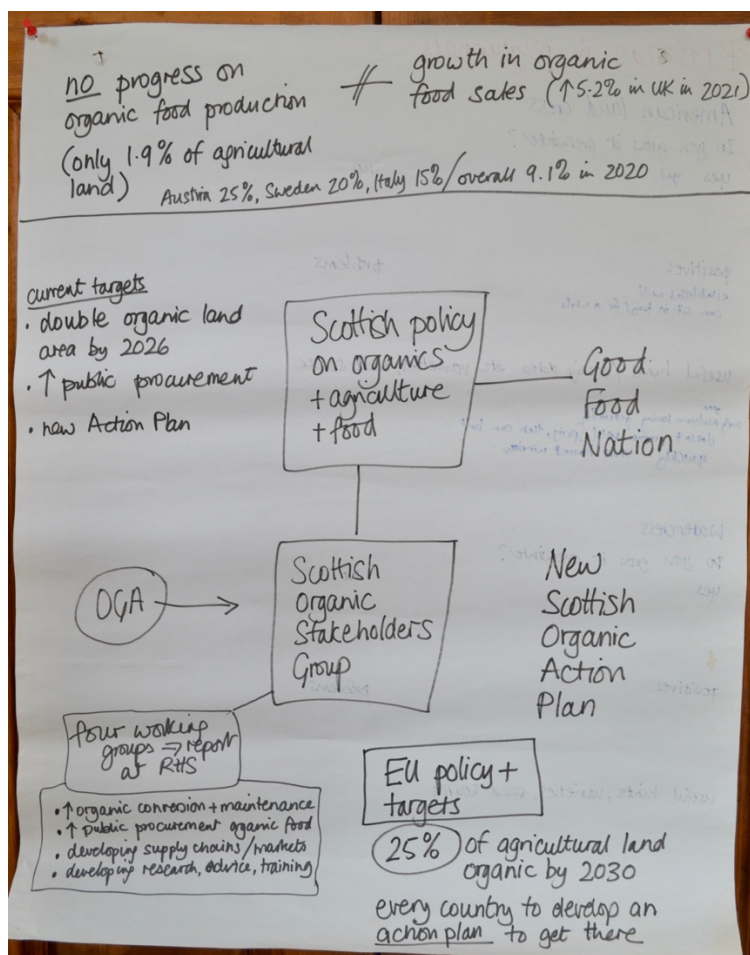 no progress on
organic food production
(only 1.9% of agricultural
land)
≠
growth in organic
food sales (↑5.2% in UK in 2021)
Austria 25%, Sweden 20%, Italy 15%/overall 9.1% in 2020
current targets
· double organic land
area by 2026
· ↑ public procurement
· new Action Plan
Scottish policy
on organics
+ agriculture
+ food
Good
Food
Nation
OGA →
Scottish
Organic
Stakeholders
Group
New
Scottish
Organic
Action
Plan
four working
groups ⇒ report
at RHS
· ↑ organic conversion + maintenance
· ↑ public procurement organic food
· developing supply chains/markets
· developing research, advice, training
EU policy +
targets
25% of agricultural land
organic by 2030
every country to develop an
action plan to get there